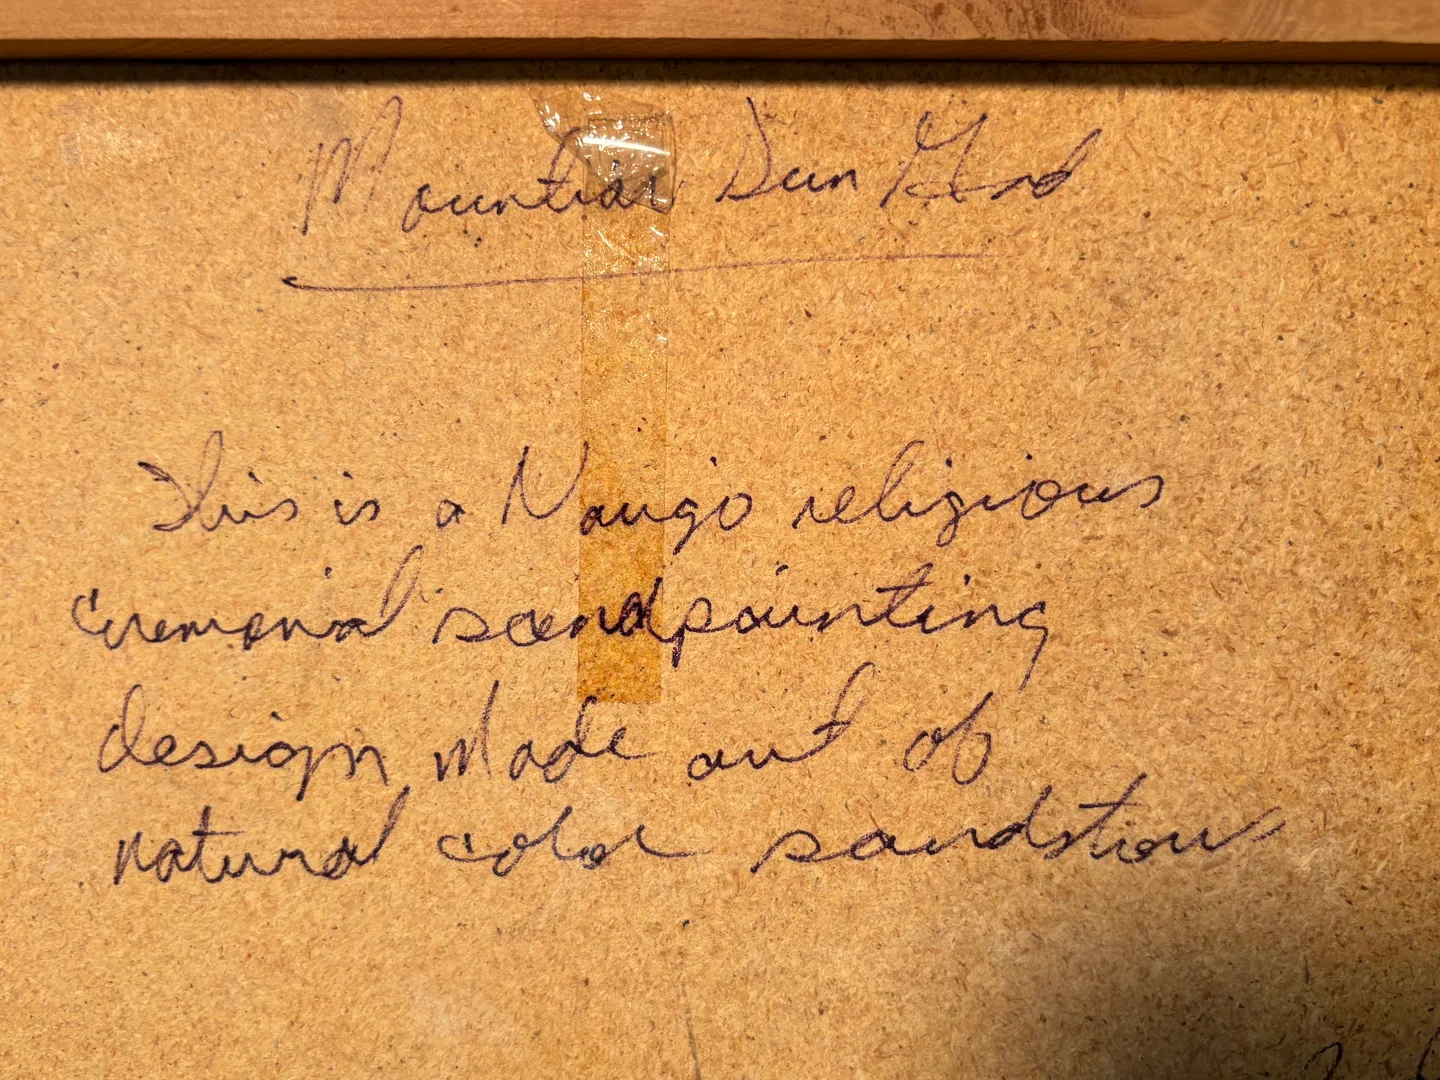 Mountian Sun God
This is a Navigo religious
ceremonial sandpainting
design Made out of
natural color sandstone